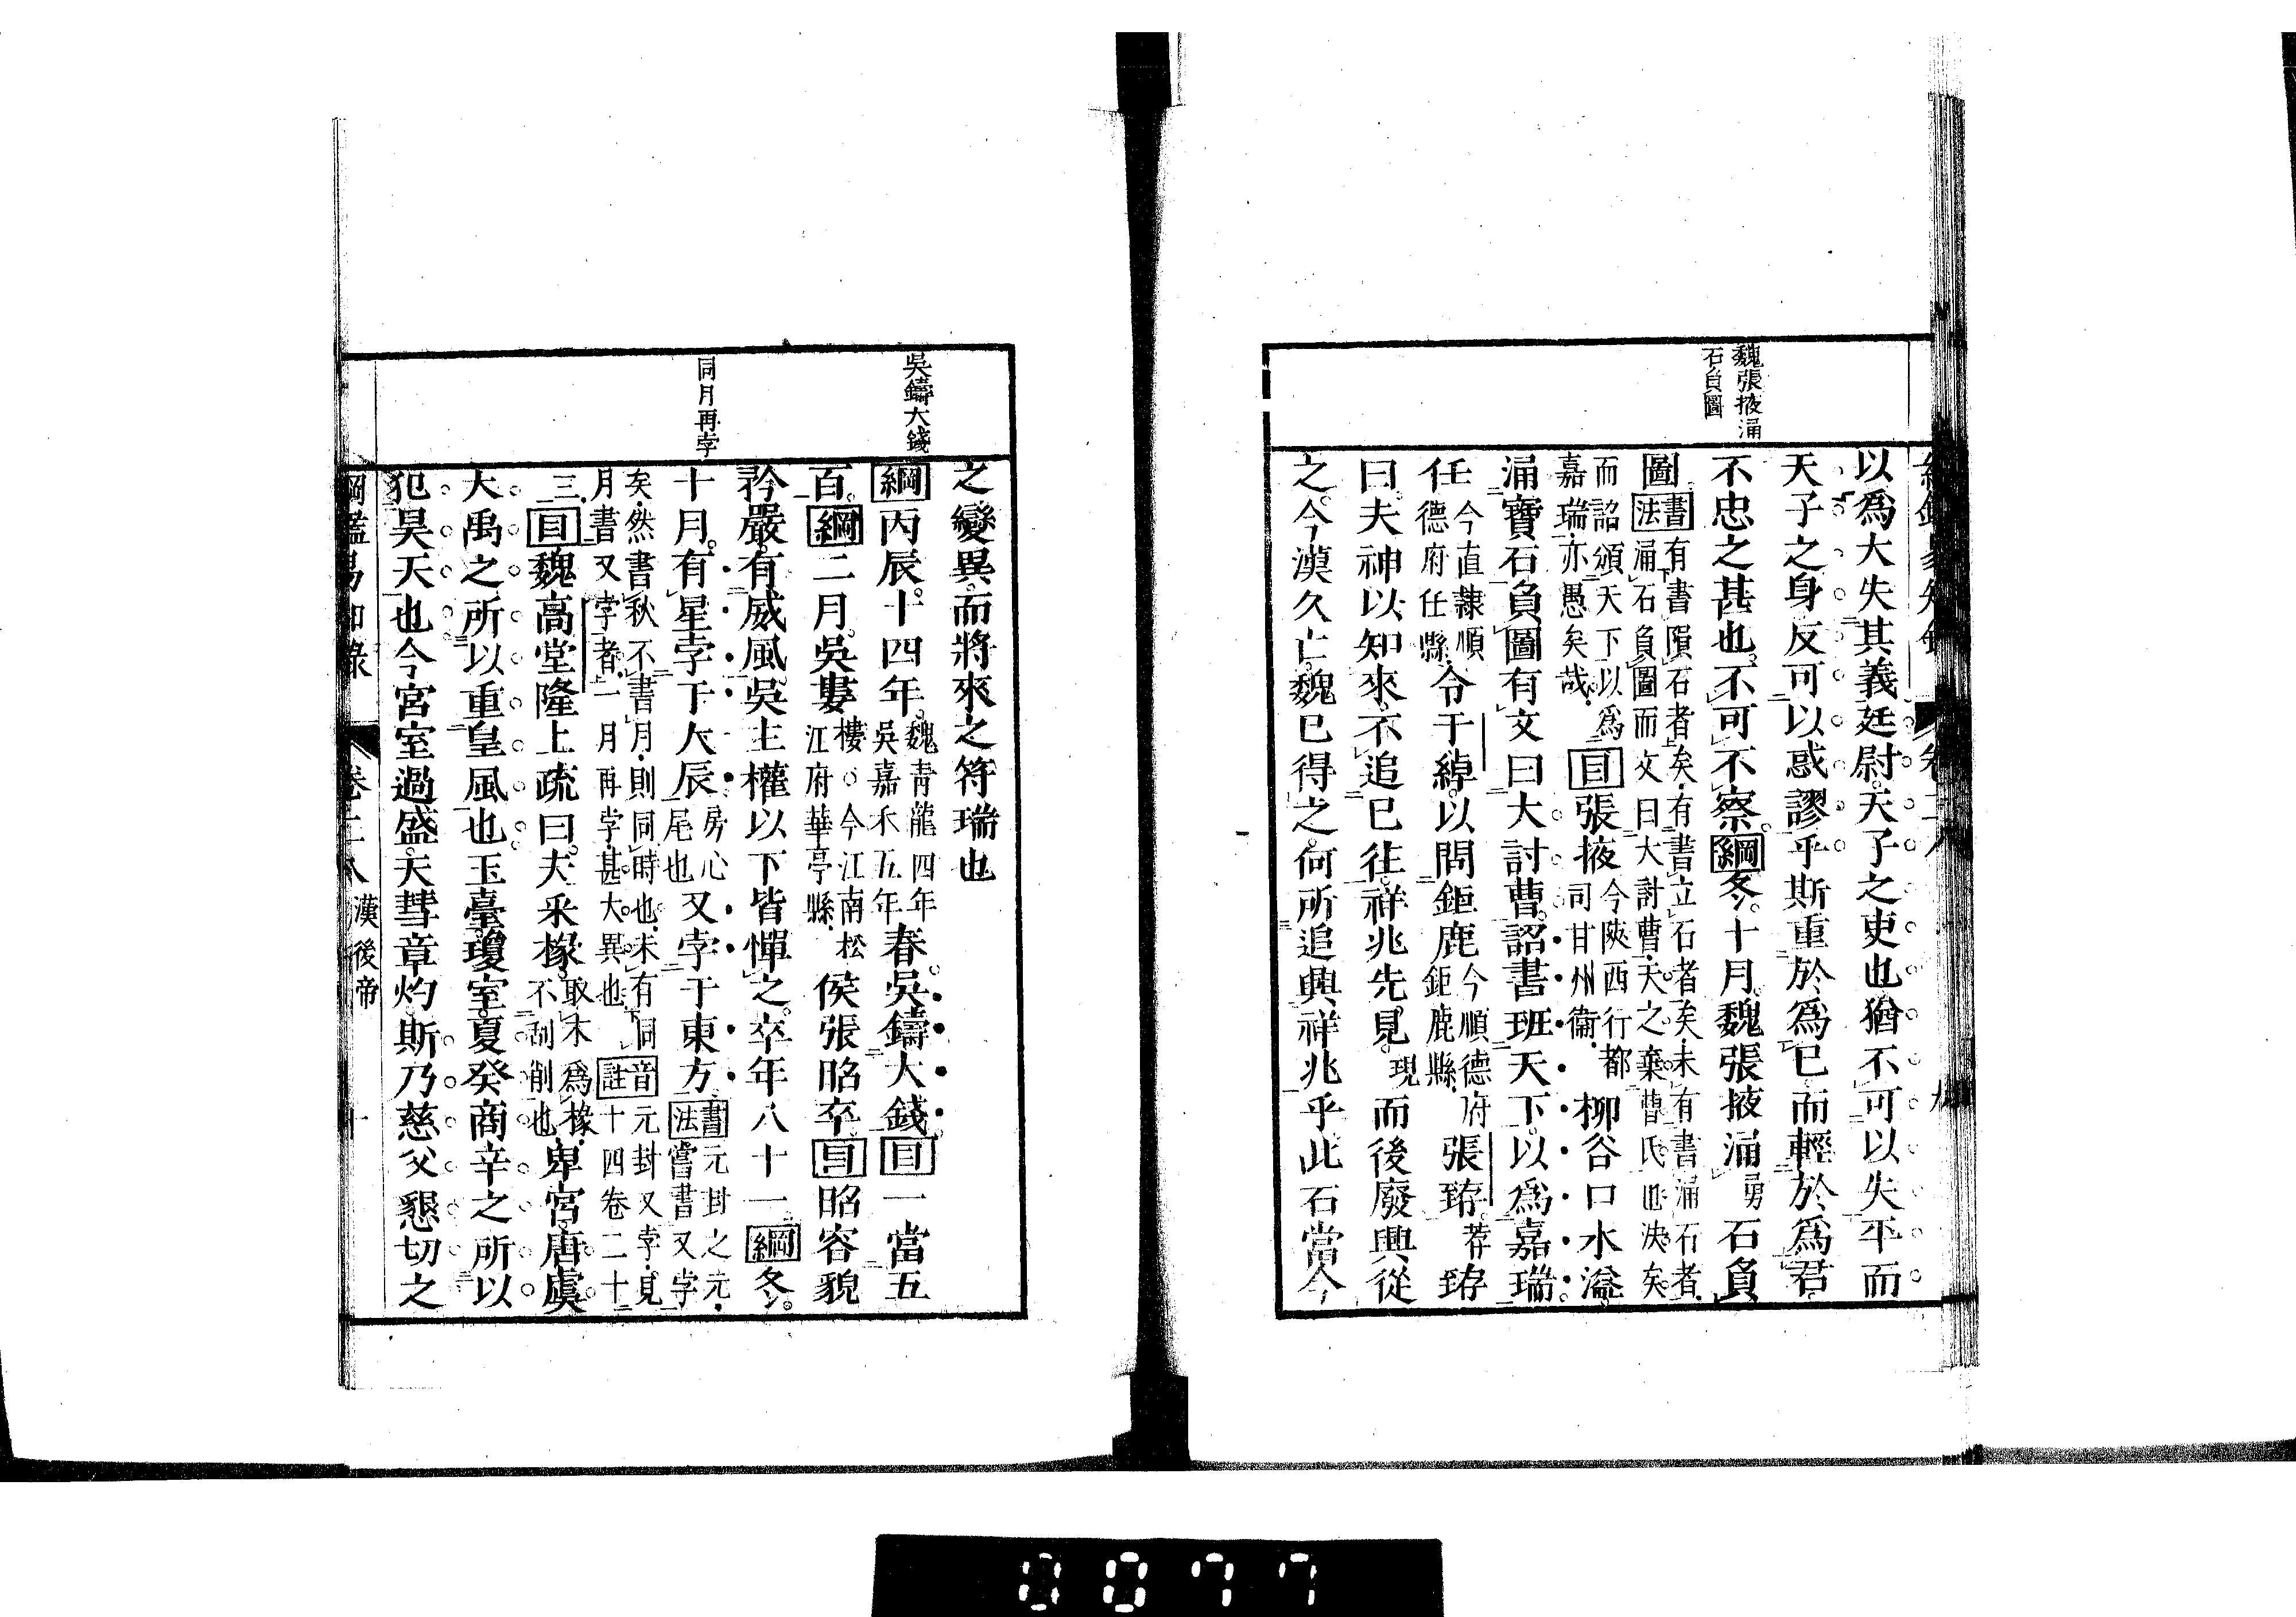 魏張掖涌
石負圖
以爲大失其義廷尉天子之吏也猶不可以失平而
天子之身反可以惑謬乎斯重於爲已而輕於爲君
不忠之甚也不可不察綱冬十月魏張掖涌勇石負
圖書法有書隕石者矣有書立石者矣未有書涌石者
涌石負圖而文曰大討曹天之棄曹氏也決矣
而詔頒天下以爲
嘉瑞亦愚矣哉目張掖今陝西行都
司甘州衞柳谷口水溢
涌寶石負圖有文曰大討曹詔書班天下以爲嘉瑞
任今直隸順
德府任縣令于綽以問鉅鹿今順德府
鉅鹿縣張臶荐臶
曰夫神以知來不追已往祥兆先見現而後廢興從
之今漢久亡魏已得之何所追興祥兆乎此石當今
吳鑄大錢
同月再孛
之變異而將來之符瑞也
綱丙辰十四年魏青龍四年
吳嘉禾五年春吳鑄大錢目一當五
百綱二月吳婁樓今江南松
江府華亭縣侯張昭卒目昭容貌
矜嚴有威風吳主權以下皆憚之卒年八十一綱冬
十月有星孛于大辰房心
尾也又孛于東方書法元封之元
嘗書又孛
矣然書秋不書月則同時也未有同
月書又孛者一月再孛甚大異也音註元封又孛見
十四卷二十
三目魏高堂隆上疏曰夫采椽取木爲椽
不刮削也卑宮唐虞
大禹之所以重皇風也玉臺瓊室夏癸商辛之所以
犯昊天也今宮室過盛天彗章灼斯乃慈父懇切之
綱鑑易知錄 卷二八 漢後帝 十